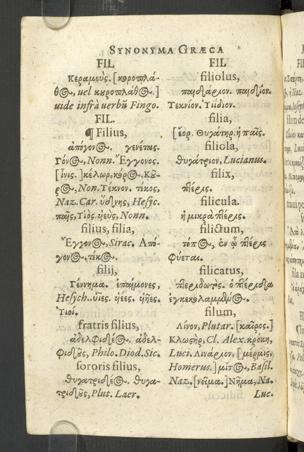 SYNONYMA GRÆCA
FIL
κεραμεύς. [κοροπλά-
θος, vel κηροπλάθος.]
vide infrà verbũ Fingo.
FIL.
¶ Filius,
ἀπόγονος. γενέτης.
Nonn. Ἔγγονος.
[ἶνις.] κέλωρ, κόρος. Κῦ-
ρος, Non. Τέκνον. τίκος,
Naz. Car. Hesyc.
παῖς, Υἱὸς Nonn.
filius, filia,
Ἔγγονος, Sirac. Ἀπό-
γονος,
filij,
Γέννημα. ἐπαΐμονες,
Hesych. υἷες.
Υἱοί.
fratris filius,
ἀδελφιδέος. ἀδελ-
φιδοῦς, Philo. Diod. Sic.
sororis filius,
θυγατριδέος. θυγα-
τριδοῦς, Plut. Laer.
FIL
filiolus,
παιδάριον. παιδίον.
Τεκνίον. Υἵδιον.
filia,
Θυγάτηρ. ἡ παῖς.
filiola,
θυγάτριον, Lucianus.
filix,
πτέρις.
filicula.
ἡ μικρὰ πτέρις.
filictum,
τόπος, ἐν ᾧ πτέρις
φύεται.
filicatus,
πτερδωτὸς.
filum,
Λίνον, Plutar. [καῖρος.]
Κλωστήρ, Cl. Alex. κρόκη,
Luci. Λινάριον. [μέρμις,
Homerus.] μίτος, Basil.
Naz. [νεῖμα.] Νῆμα, Na-
Luc.